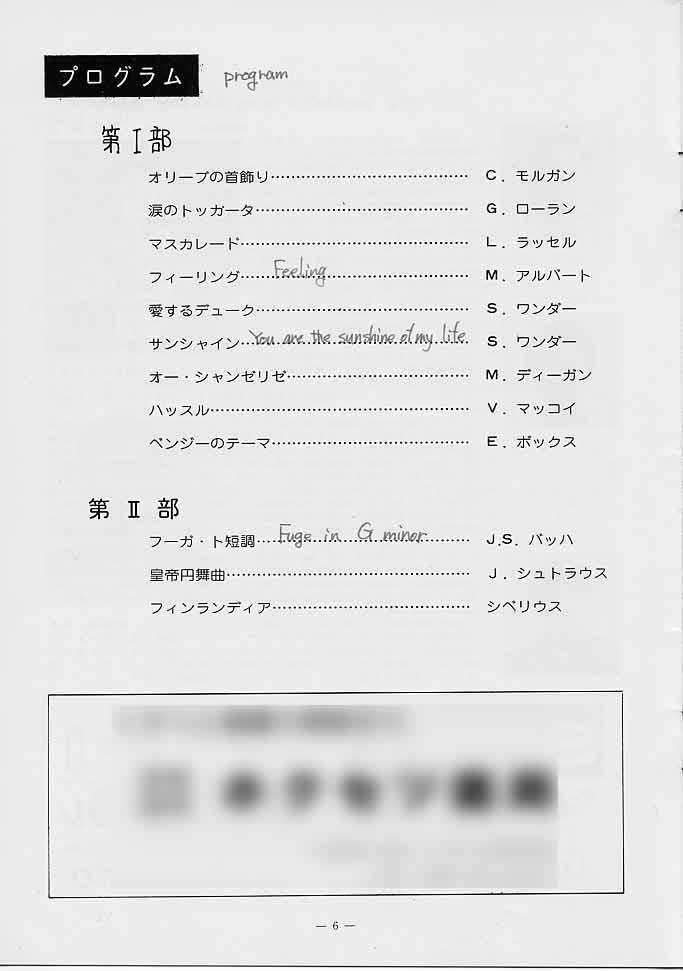 プログラム program
第Ⅰ部
オリーブの首飾り…………………………………… C．モルガン
涙のトッカータ…………………………………… G．ローラン
マスカレード…………………………………… L．ラッセル
フィーリング……Feeling…………………… M．アルバート
愛するデューク…………………………………… S．ワンダー
サンシャイン…You are the sunshine of my life S．ワンダー
オー・シャンゼリゼ…………………………… M．ディーガン
ハッスル…………………………………… V．マッコイ
ベンジーのテーマ…………………………… E．ボックス
第 Ⅱ 部
フーガ・ト短調…Fuge in G minor………… J.S．バッハ
皇帝円舞曲…………………………………… J．シュトラウス
フィンランディア…………………………… シベリウス
— 6 —